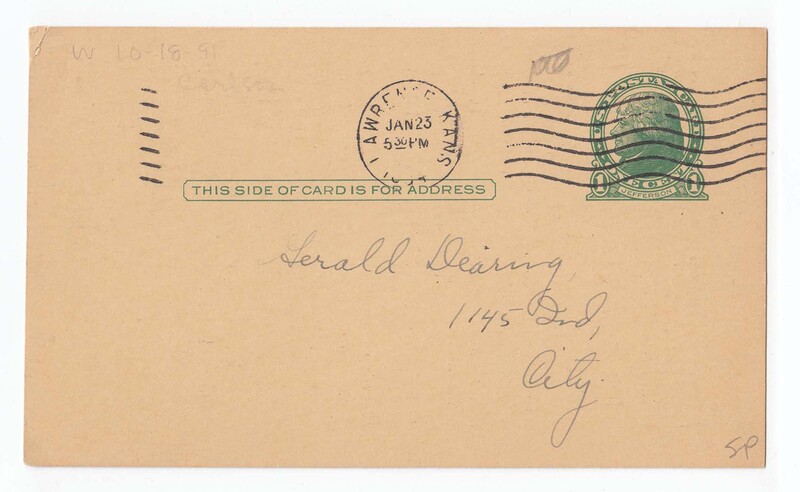 W 10-18-91
Carlson
LAWRENCE KANS
JAN 23
5 30 PM
THIS SIDE OF CARD IS FOR ADDRESS
1 JEFFERSON 1
Gerald Dearing,
1145 Ind,
City.
SP